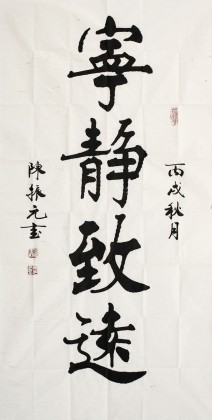 丙戌秋月
寧静致遠
陳振元书